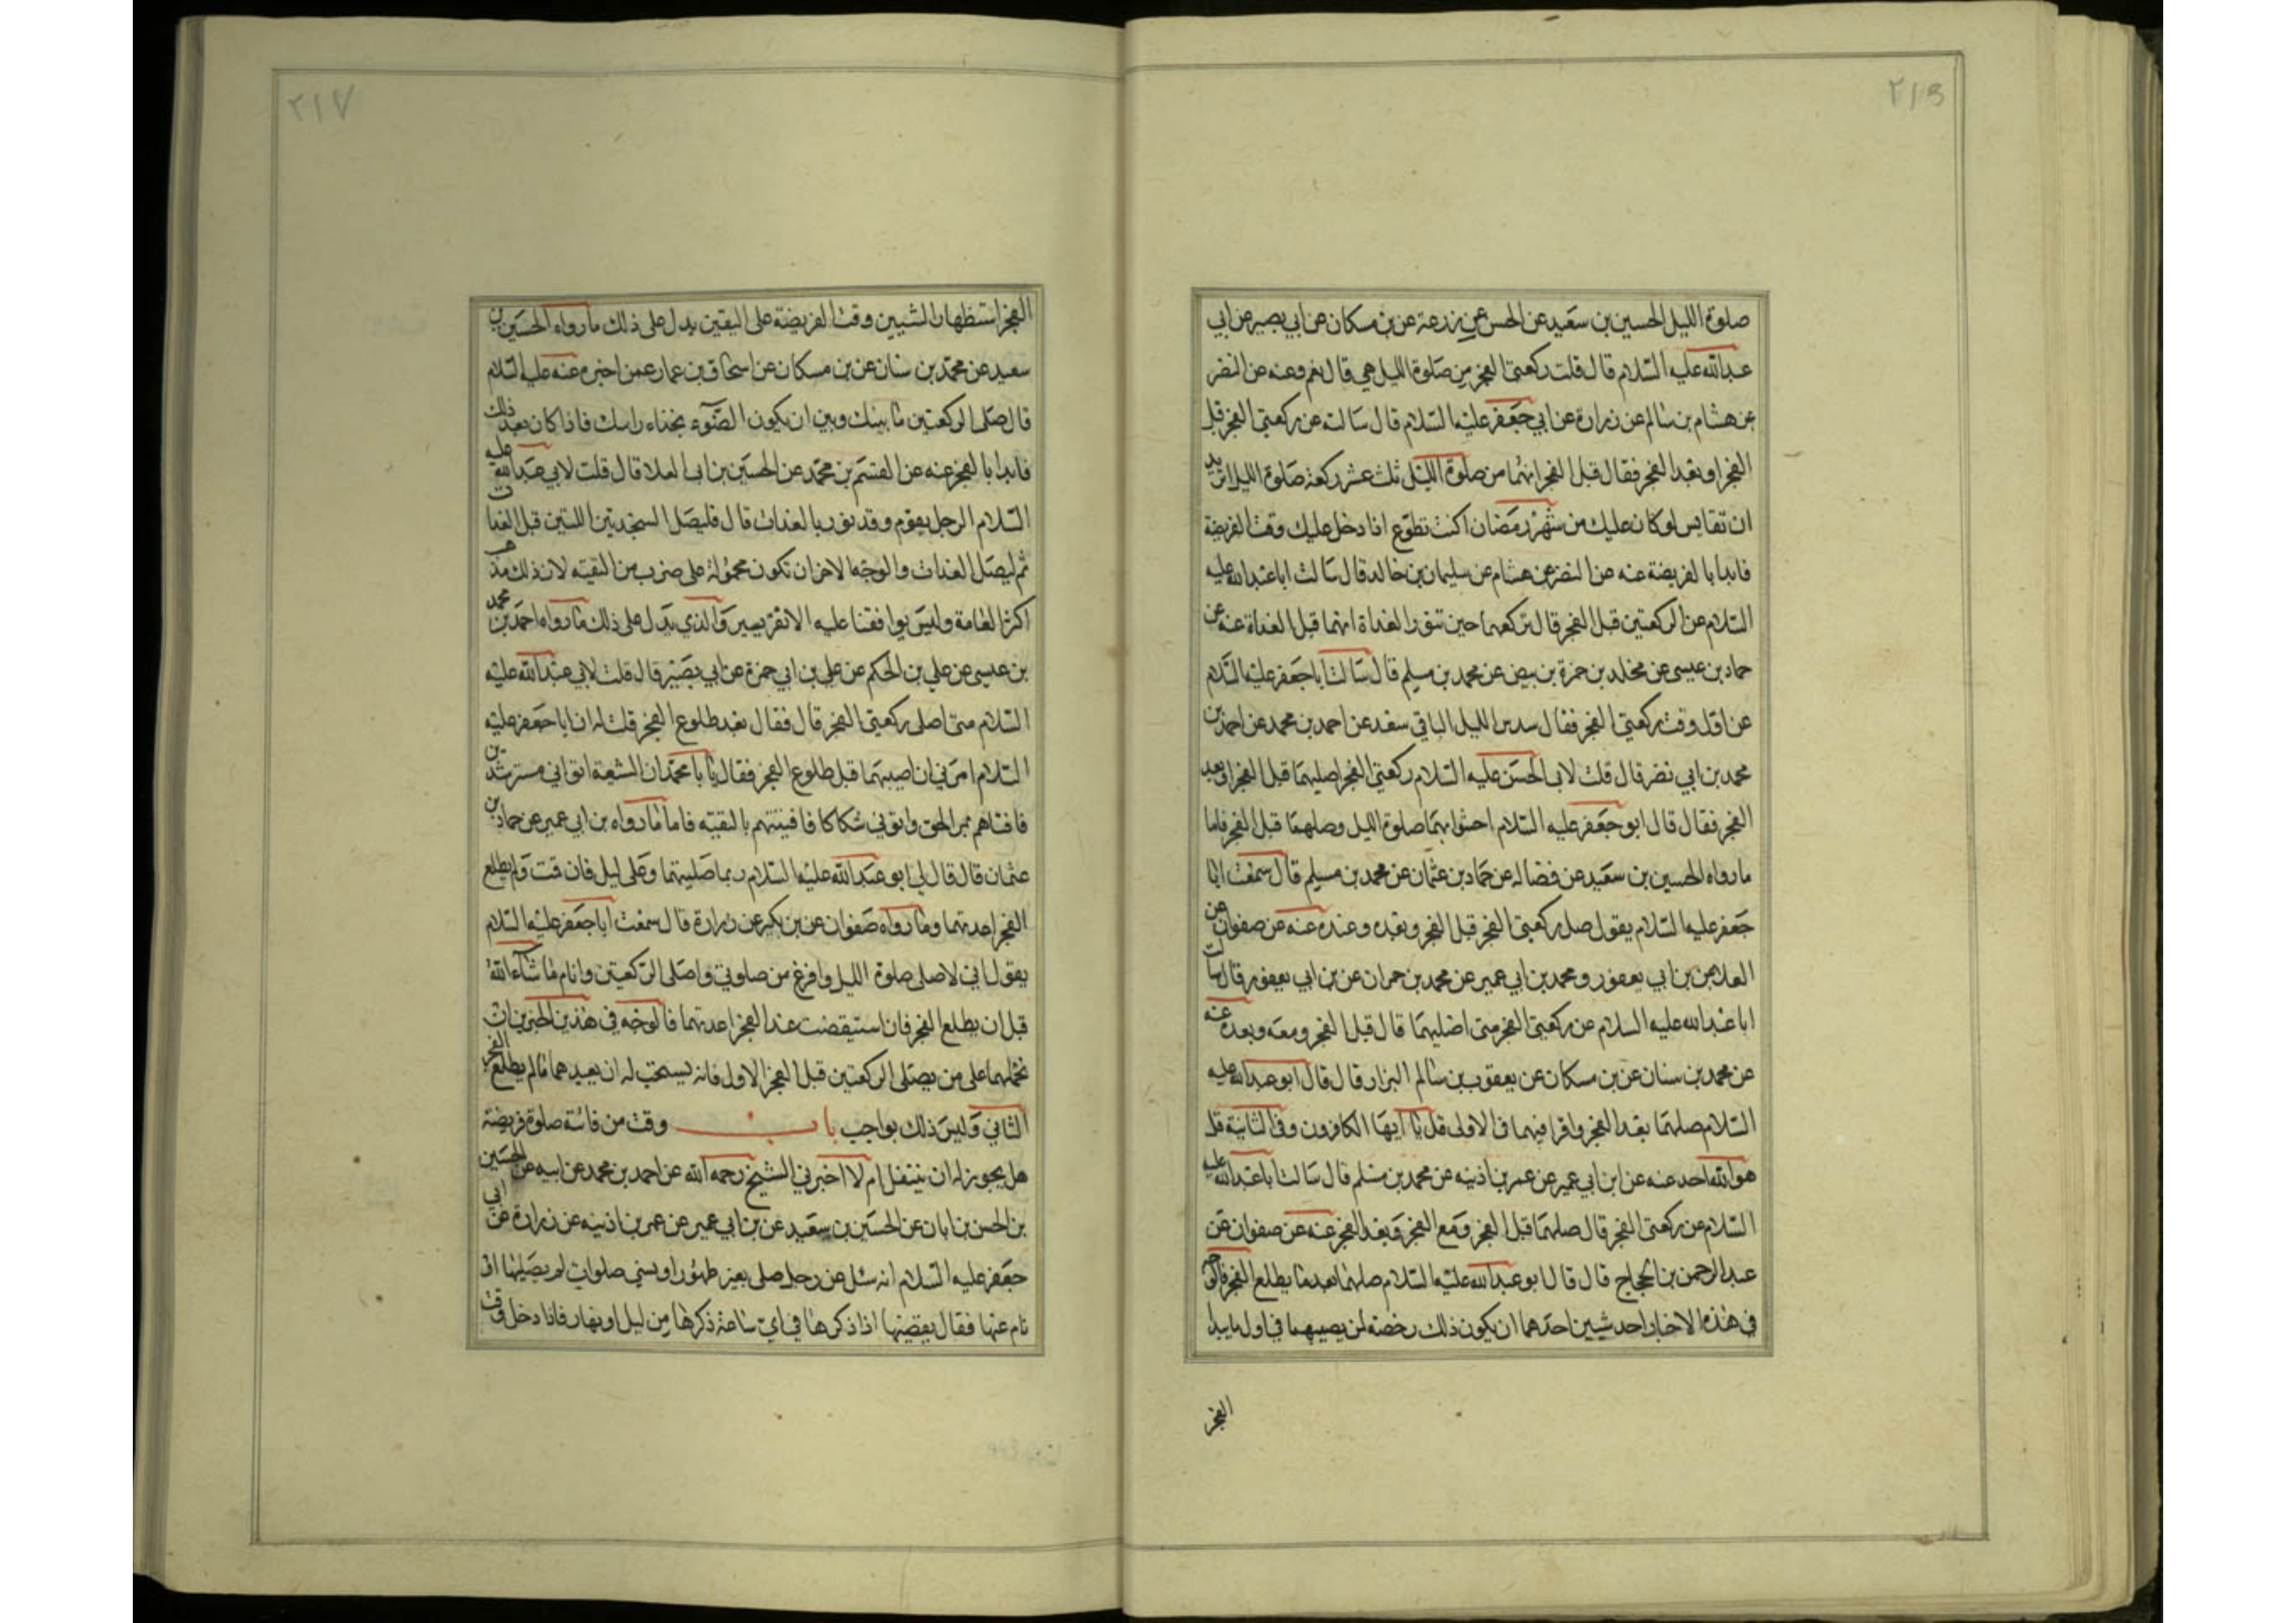 ٢١٦
صلوة الليل الحسين بن سعيد عن الحسن عن زرعة عن بن مسكان عن ابي بصير عن ابي
عبدالله عليه السلام قال قلت ركعتي الفجر من صلوة الليل هي قال نعم وعنه عن النضر
عن هشام بن سالم عن زرارة عن ابي جعفر عليه السلام قال سالته عن ركعتي الفجر قبل
الفجر او بعد الفجر فقال قبل الفجر انهما من صلوة الليل ثلث عشر ركعة صلوة الليل اتريد
ان تقايس لو كان عليك من شهر رمضان اكنت تطوع اذا دخل عليك وقت الفريضة
فابدا بالفريضة عنه عن النضر عن هشام عن سليمان بن خالد قال سالت اباعبدالله عليه
السلام عن الركعتين قبل الفجر قال تركعهما حين تنور الغداة انهما قبل الغداة عنه عن
حماد بن عيسى عن مخلد بن حمزة بن بيض عن محمد بن مسلم قال سالت اباجعفر عليه السلام
عن اول وقت ركعتي الفجر فقال سدس الليل الباقي سعد عن احمد بن محمد عن احمد بن
محمد بن ابي نضر قال قلت لابي الحسن عليه السلام ركعتي الفجر اصليهما قبل الفجر او بعد
الفجر فقال قال ابو جعفر عليه السلام احشوا بهما صلوة الليل وصلهما قبل الفجر فاما
مارواه الحسين بن سعيد عن فضاله عن حماد بن عثمان عن محمد بن مسلم قال سمعت ابا
جعفر عليه السلام يقول صل ركعتي الفجر قبل الفجر وبعده وعنده عنه عن صفوان عن
العلا عن بن ابي يعفور ومحمد بن ابي عمير عن محمد بن حمران عن بن ابي يعفور قال سالت
ابا عبدالله عليه السلام عن ركعتي الفجر متى اصليهما قال قبل الفجر ومعه وبعده عنه
عن محمد بن سنان عن بن مسكان عن يعقوب بن سالم البزار قال قال ابو عبدالله عليه
السلام صلهما بعد الفجر واقرا فيهما في الاولى قل يا ايها الكافرون وفي الثانية قل
هو الله احد عنه عن ابن ابي عمير عن عمر بن اذينه عن محمد بن مسلم قال سالت اباعبدالله عليه
السلام عن ركعتي الفجر قال صلهما قبل الفجر ومع الفجر وبعد الفجر عنه عن صفوان عن
عبدالرحمن بن الحجاج قال قال ابو عبدالله عليه السلام صلهما بعد ما يطلع الفجر فالوجه
في هذه الاخبار احد شيين احدهما ان يكون ذلك رخصة لمن يصليهما في اول مايبدا
الفجر
٢١٧
الفجر استظهارا لتبيين وقت الفريضة على اليقين يدل على ذلك مارواه الحسين بن
سعيد عن محمد بن سنان عن بن مسكان عن اسحاق بن عمار عمن اخبره عنه عليه السلام
قال صلى الركعتين ما بينك وبين ان يكون الضوء بحذاء راسك فاذا كان بعد ذلك
فابدا بالفجر عنه عن القسم بن محمد عن الحسين بن ابى العلا قال قلت لابي عبدالله عليه
السلام الرجل يقوم وقد نور بالغداة قال فليصل السجدتين اللتين قبل الغداة
ثم ليصل الغداة والوجه الاخر ان تكون محمولة على ضرب من التقيه لان ذلك مذهب
اكثر العامة وليس يوافقنا عليه الا نفر يسير والذي يدل على ذلك مارواه احمد بن محمد
بن عيسى عن علي بن الحكم عن علي بن ابي حمزة عن ابي بصير قال قلت لابي عبدالله عليه
السلام متى اصلى ركعتي الفجر قال فقال بعد طلوع الفجر قلت له ان ابا جعفر عليه
السلام امرني ان اصليهما قبل طلوع الفجر فقال يا با محمد ان الشيعة اتو ابي مسترشدين
فافتاهم بمر الحق واتوني شكاكا فافيتهم بالتقيه فاما مارواه بن ابي عمير عن حماد بن
عثمان قال قال لي ابو عبدالله عليه السلام ربما صليتهما وعلى ليل فان قمت ولم يطلع
الفجر اعدتهما وما رواه صفوان عن بن بكير عن زرارة قال سمعت اباجعفر عليه السلام
يقول اني لاصلى صلوة الليل وافرغ من صلوتي واصلى الركعتين وانام ما شاء الله
قبل ان يطلع الفجر فان استيقضت عند الفجر اعدتهما فالوجه في هذين الخبرين ان
نحملهما على من يصلى الركعتين قبل الفجر الاول فانه يستحب له ان يعيدهما مالم يطلع الفجر
الثاني وليس ذلك بواجب باب وقت من فاتته صلوة فريضة
هل يجوز له ان يتنفل ام لا اخبرني الشيخ رحمه الله عن احمد بن محمد عن ابيه عن الحسين
بن الحسن بن ابان عن الحسين بن سعيد عن بن ابي عمير عن عمر بن اذينه عن زرارة عن ابي
جعفر عليه السلام انه سئل عن رجل صلى بغير طهور او نسي صلوات لم يصليها او
نام عنها فقال يقضيها اذا ذكرها في اي ساعة ذكرها من ليل او نهار فاذا دخل وقت